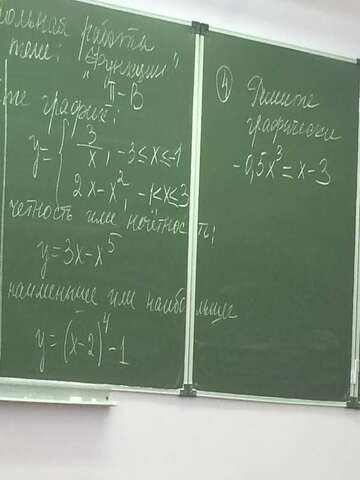 работа
теме: "Функции"
I-В
график:
y = { 3/x, -3≤x≤-1
2x-x², -1<x≤3
четность или нечётность:
y=3x-x⁵
наименьшее или наибольшее
y=(x-2)⁴-1
④ Решите
графически
-0,5x³=x-3